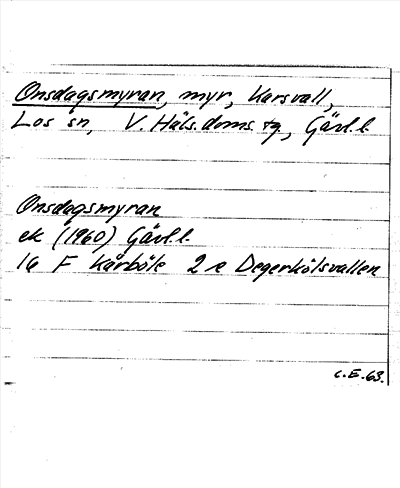 Onsdagsmyran, myr, Karsvall,
Los sn, V. Häls. doms. tg, Gävl.l.
Onsdagsmyran
ek (1960) Gävl.l.
16 F Kårböle 2 e Degerkölsvallen
C.E.-63.